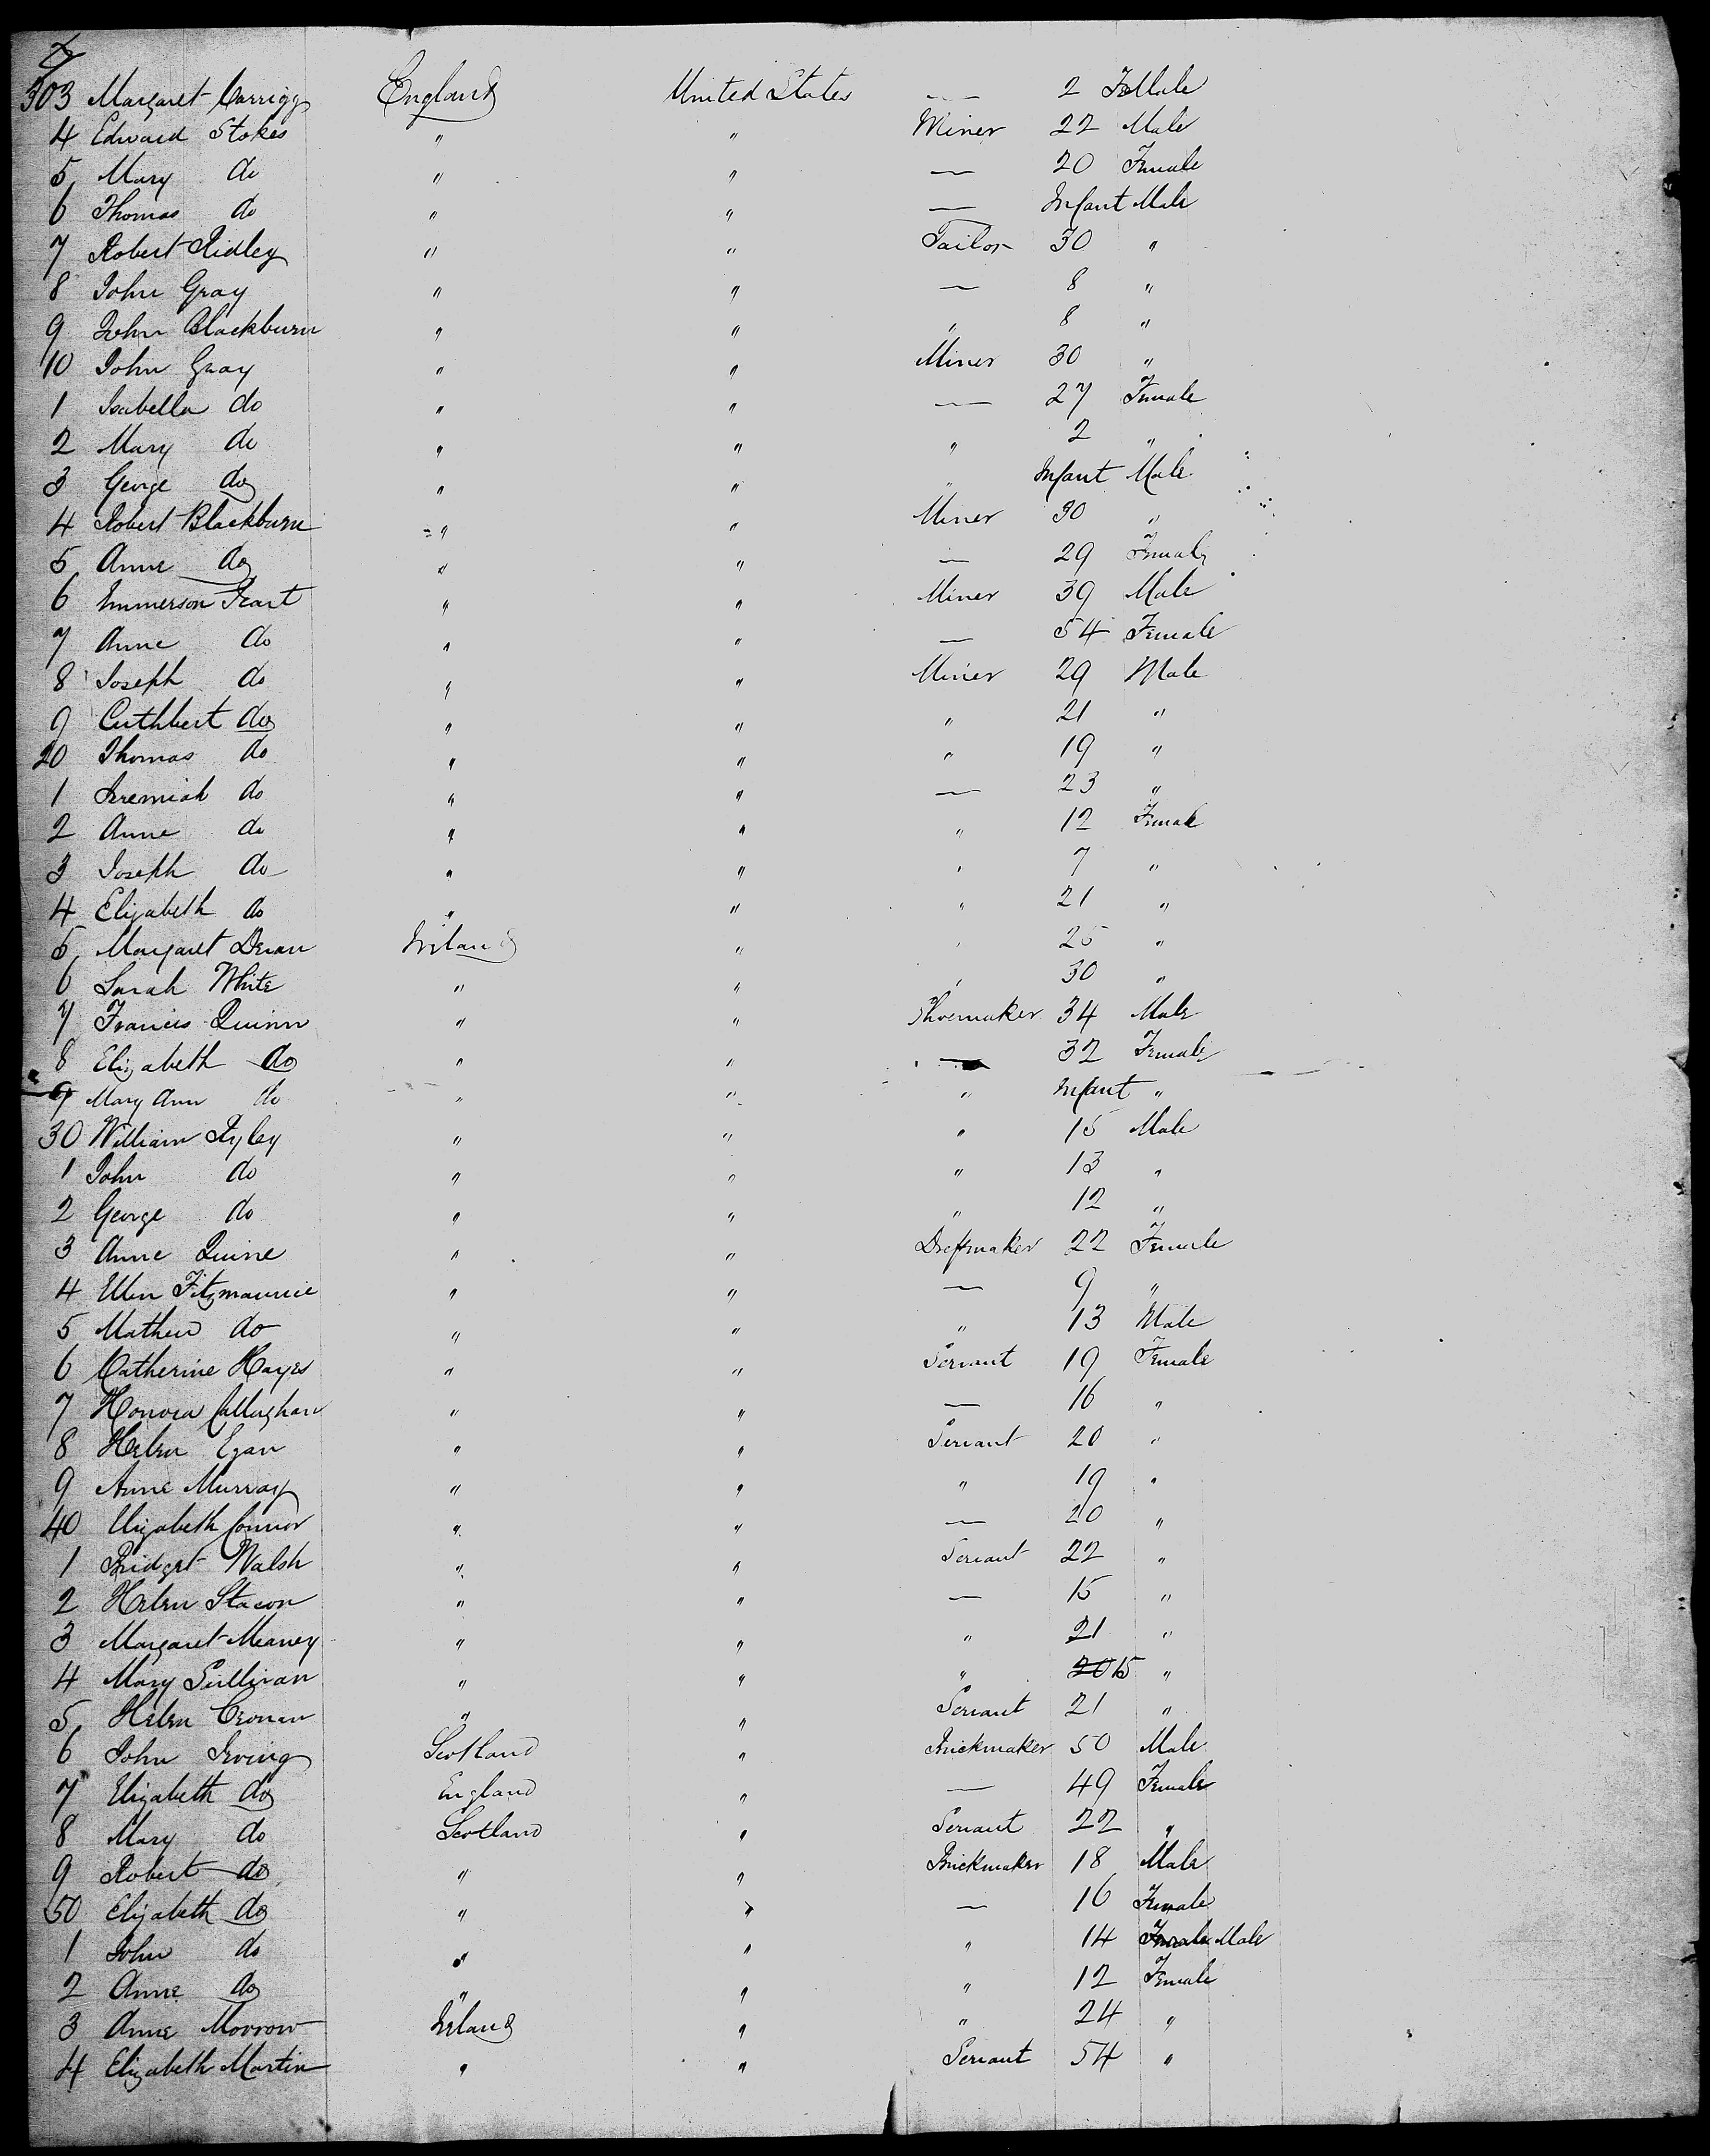 303 Margaret Carrigg England United States — 2 FeMale
4 Edward Stokes " " Miner 22 Male
5 Mary do " " — 20 Female
6 Thomas do " " — Infant Male
7 Robert Ridley " " Tailor 30 "
8 John Gray " " — 8 "
9 John Blackburn " " " 8 "
10 John Gray " " Miner 30 "
1 Isabella do " " — 27 Female
2 Mary do " " " 2 "
3 George do " " " Infant Male
4 Robert Blackburn " " Miner 30 "
5 Anne do " " — 29 Female
6 Emmerson Peart " " Miner 39 Male
7 Anne do " " — 54 Female
8 Joseph do " " Miner 29 Male
9 Cuthbert do " " " 21 "
20 Thomas do " " " 19 "
1 Jeremiah do " " — 23 "
2 Anne do " " " 12 Female
3 Joseph do " " " 7 "
4 Elizabeth do " " " 21 "
5 Margaret Ireland " " 25 "
6 Sarah White " " " 30 "
7 Francis Quinn " " Shoemaker 34 Male
8 Elizabeth do " " — 32 Female
9 Mary Ann do " " " Infant "
30 William Ryley " " " 15 Male
1 John do " " " 13 "
2 George do " " " 12 "
3 Anne Quine " " Dressmaker 22 Female
4 Ellen Fitzmaurice " " — 9 "
5 Mathew do " " " 13 Male
6 Catherine Hayes " " Servant 19 Female
7 Honora Callaghan " " — 16 "
8 Helen Egan " " Servant 20 "
9 Anne Murray " " " 19 "
40 Elizabeth Connor " " — 20 "
1 Bridget Walsh " " Servant 22 "
2 Helen Stacon " " — 15 "
3 Margaret Meaney " " " 21 "
4 Mary Sullivan " " " 20 15 "
5 Helen Cronan " " Servant 21 "
6 John Irving Scotland " Brickmaker 50 Male
7 Elizabeth do England " — 49 Female
8 Mary do Scotland " Servant 22 "
9 Robert do " " Brickmaker 18 Male
50 Elizabeth do " " — 16 Female
1 John do " " " 14 Female Male
2 Anne do " " " 12 Female
3 Anne Morrow Ireland " " 24 "
4 Elizabeth Martin " " Servant 54 "